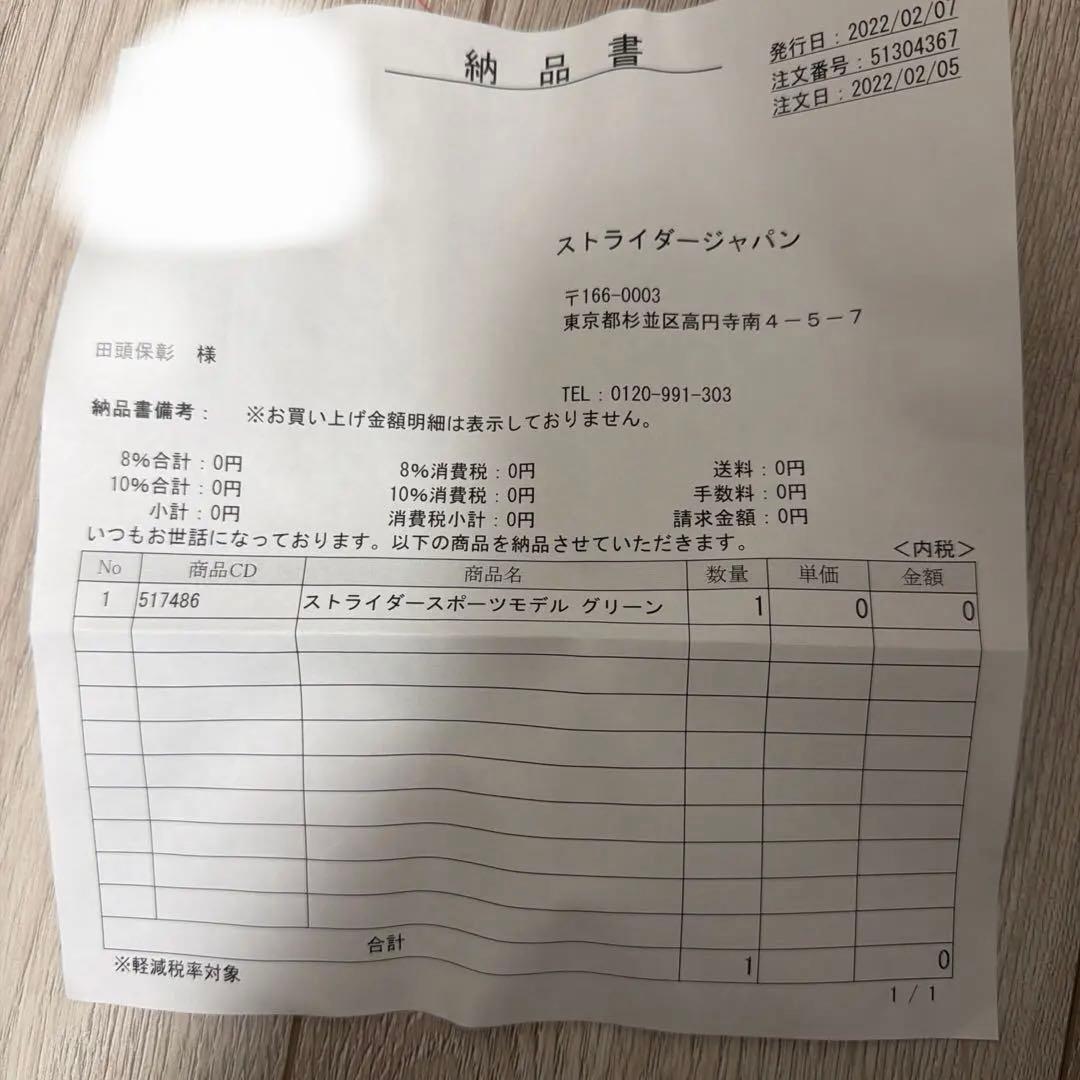 納品書
発行日：2022/02/07
注文番号：51304367
注文日：2022/02/05
ストライダージャパン
〒166-0003
東京都杉並区高円寺南４－５－７
田頭保彰 様
TEL：0120-991-303
納品書備考： ※お買い上げ金額明細は表示しておりません。
8%合計：0円 8%消費税：0円 送料：0円
10%合計：0円 10%消費税：0円 手数料：0円
小計：0円 消費税小計：0円 請求金額：0円
いつもお世話になっております。以下の商品を納品させていただきます。
＜内税＞
No 商品CD 商品名 数量 単価 金額
1 517486 ストライダースポーツモデル グリーン 1 0 0
合計 1 0
※軽減税率対象
1 / 1